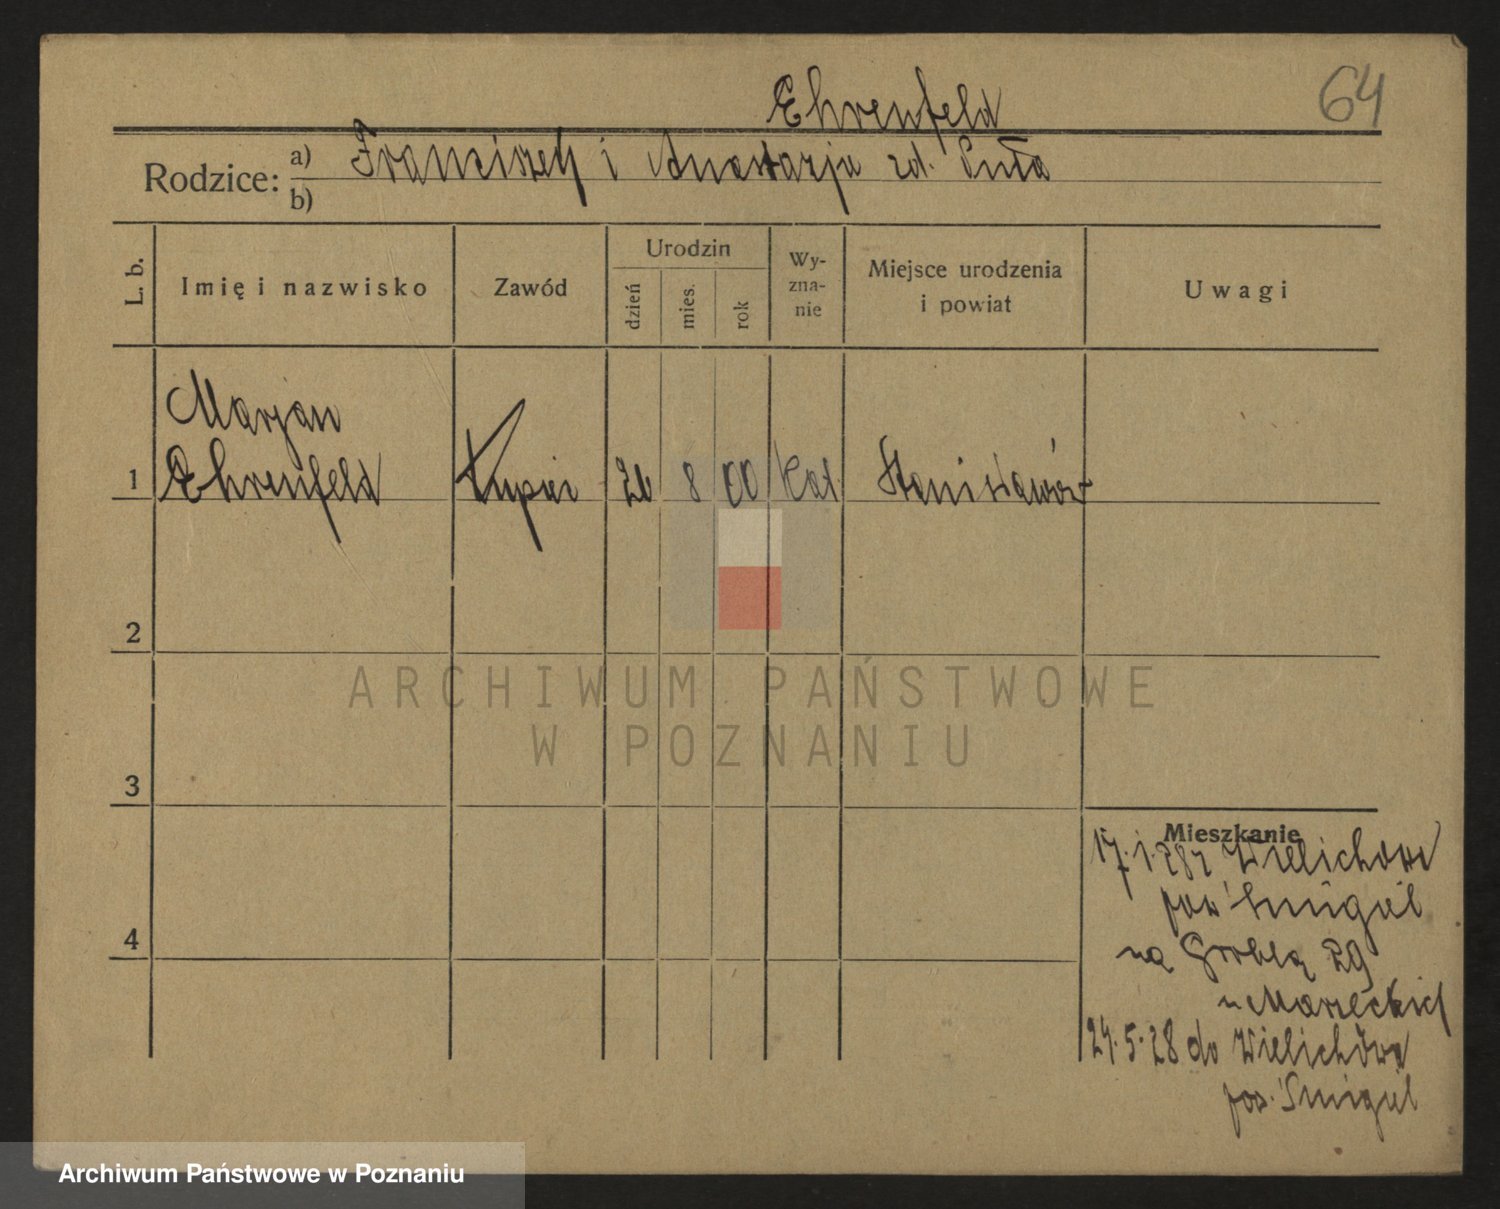 64
Ehrenfeld
Rodzice: a) Franciszek i Anastazja zd. Puła
b)
L. b. Imię i nazwisko Zawód Urodzin dzień mies. rok Wy-zna-nie Miejsce urodzenia i powiat Uwagi
Marjan
1 Ehrenfeld Kupiec 26 8 00 Kat. Stanisławów
2
3
4
Mieszkanie
17.1.28 z Wielichowa
pow Śmigiel
na Groblą 29
u Marzeckich
24.5.28 do Wielichowa
pow. Śmigiel
ARCHIWUM PAŃSTWOWE
W POZNANIU
Archiwum Państwowe w Poznaniu